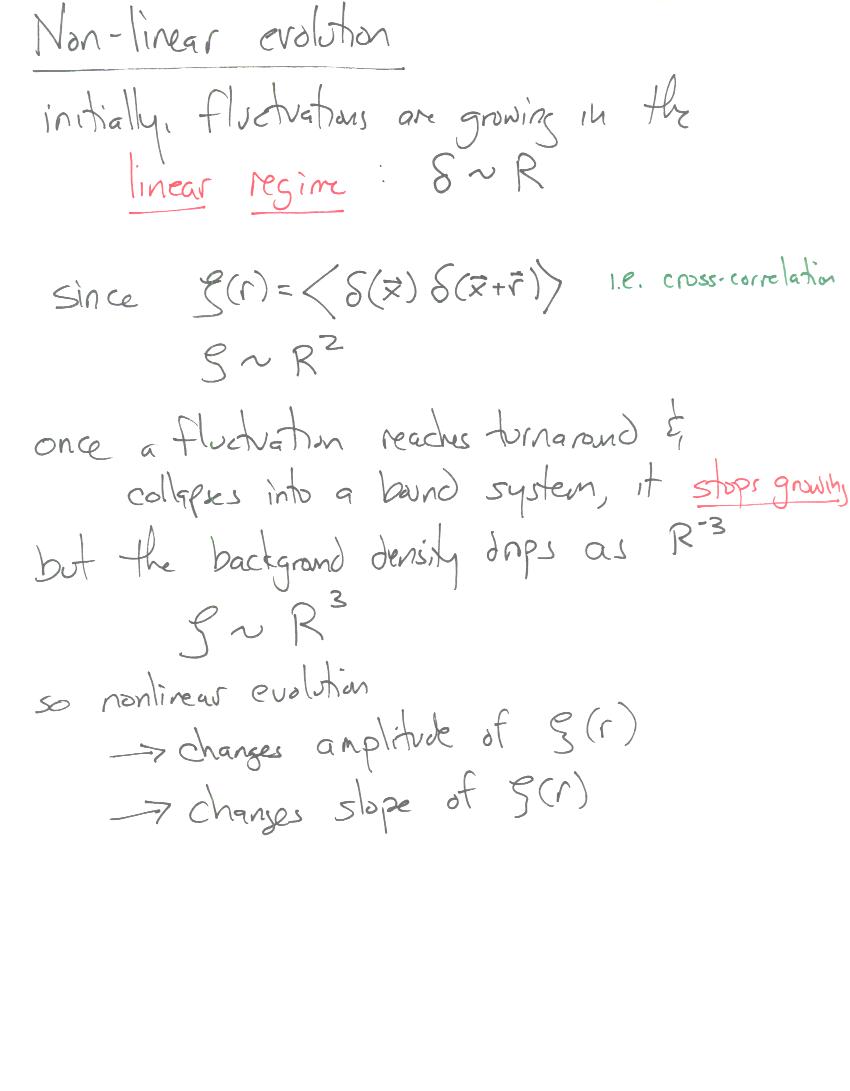 Non-linear evolution
initially, fluctuations are growing in the
linear regime : δ ~ R
since ξ(r) = < δ(x⃗) δ(x⃗+r⃗) > i.e. cross-correlation
ξ ~ R²
once a fluctuation reaches turnaround &
collapses into a bound system, it stops growing
but the background density drops as R⁻³
ξ ~ R³
so nonlinear evolution
→ changes amplitude of ξ(r)
→ changes slope of ξ(r)